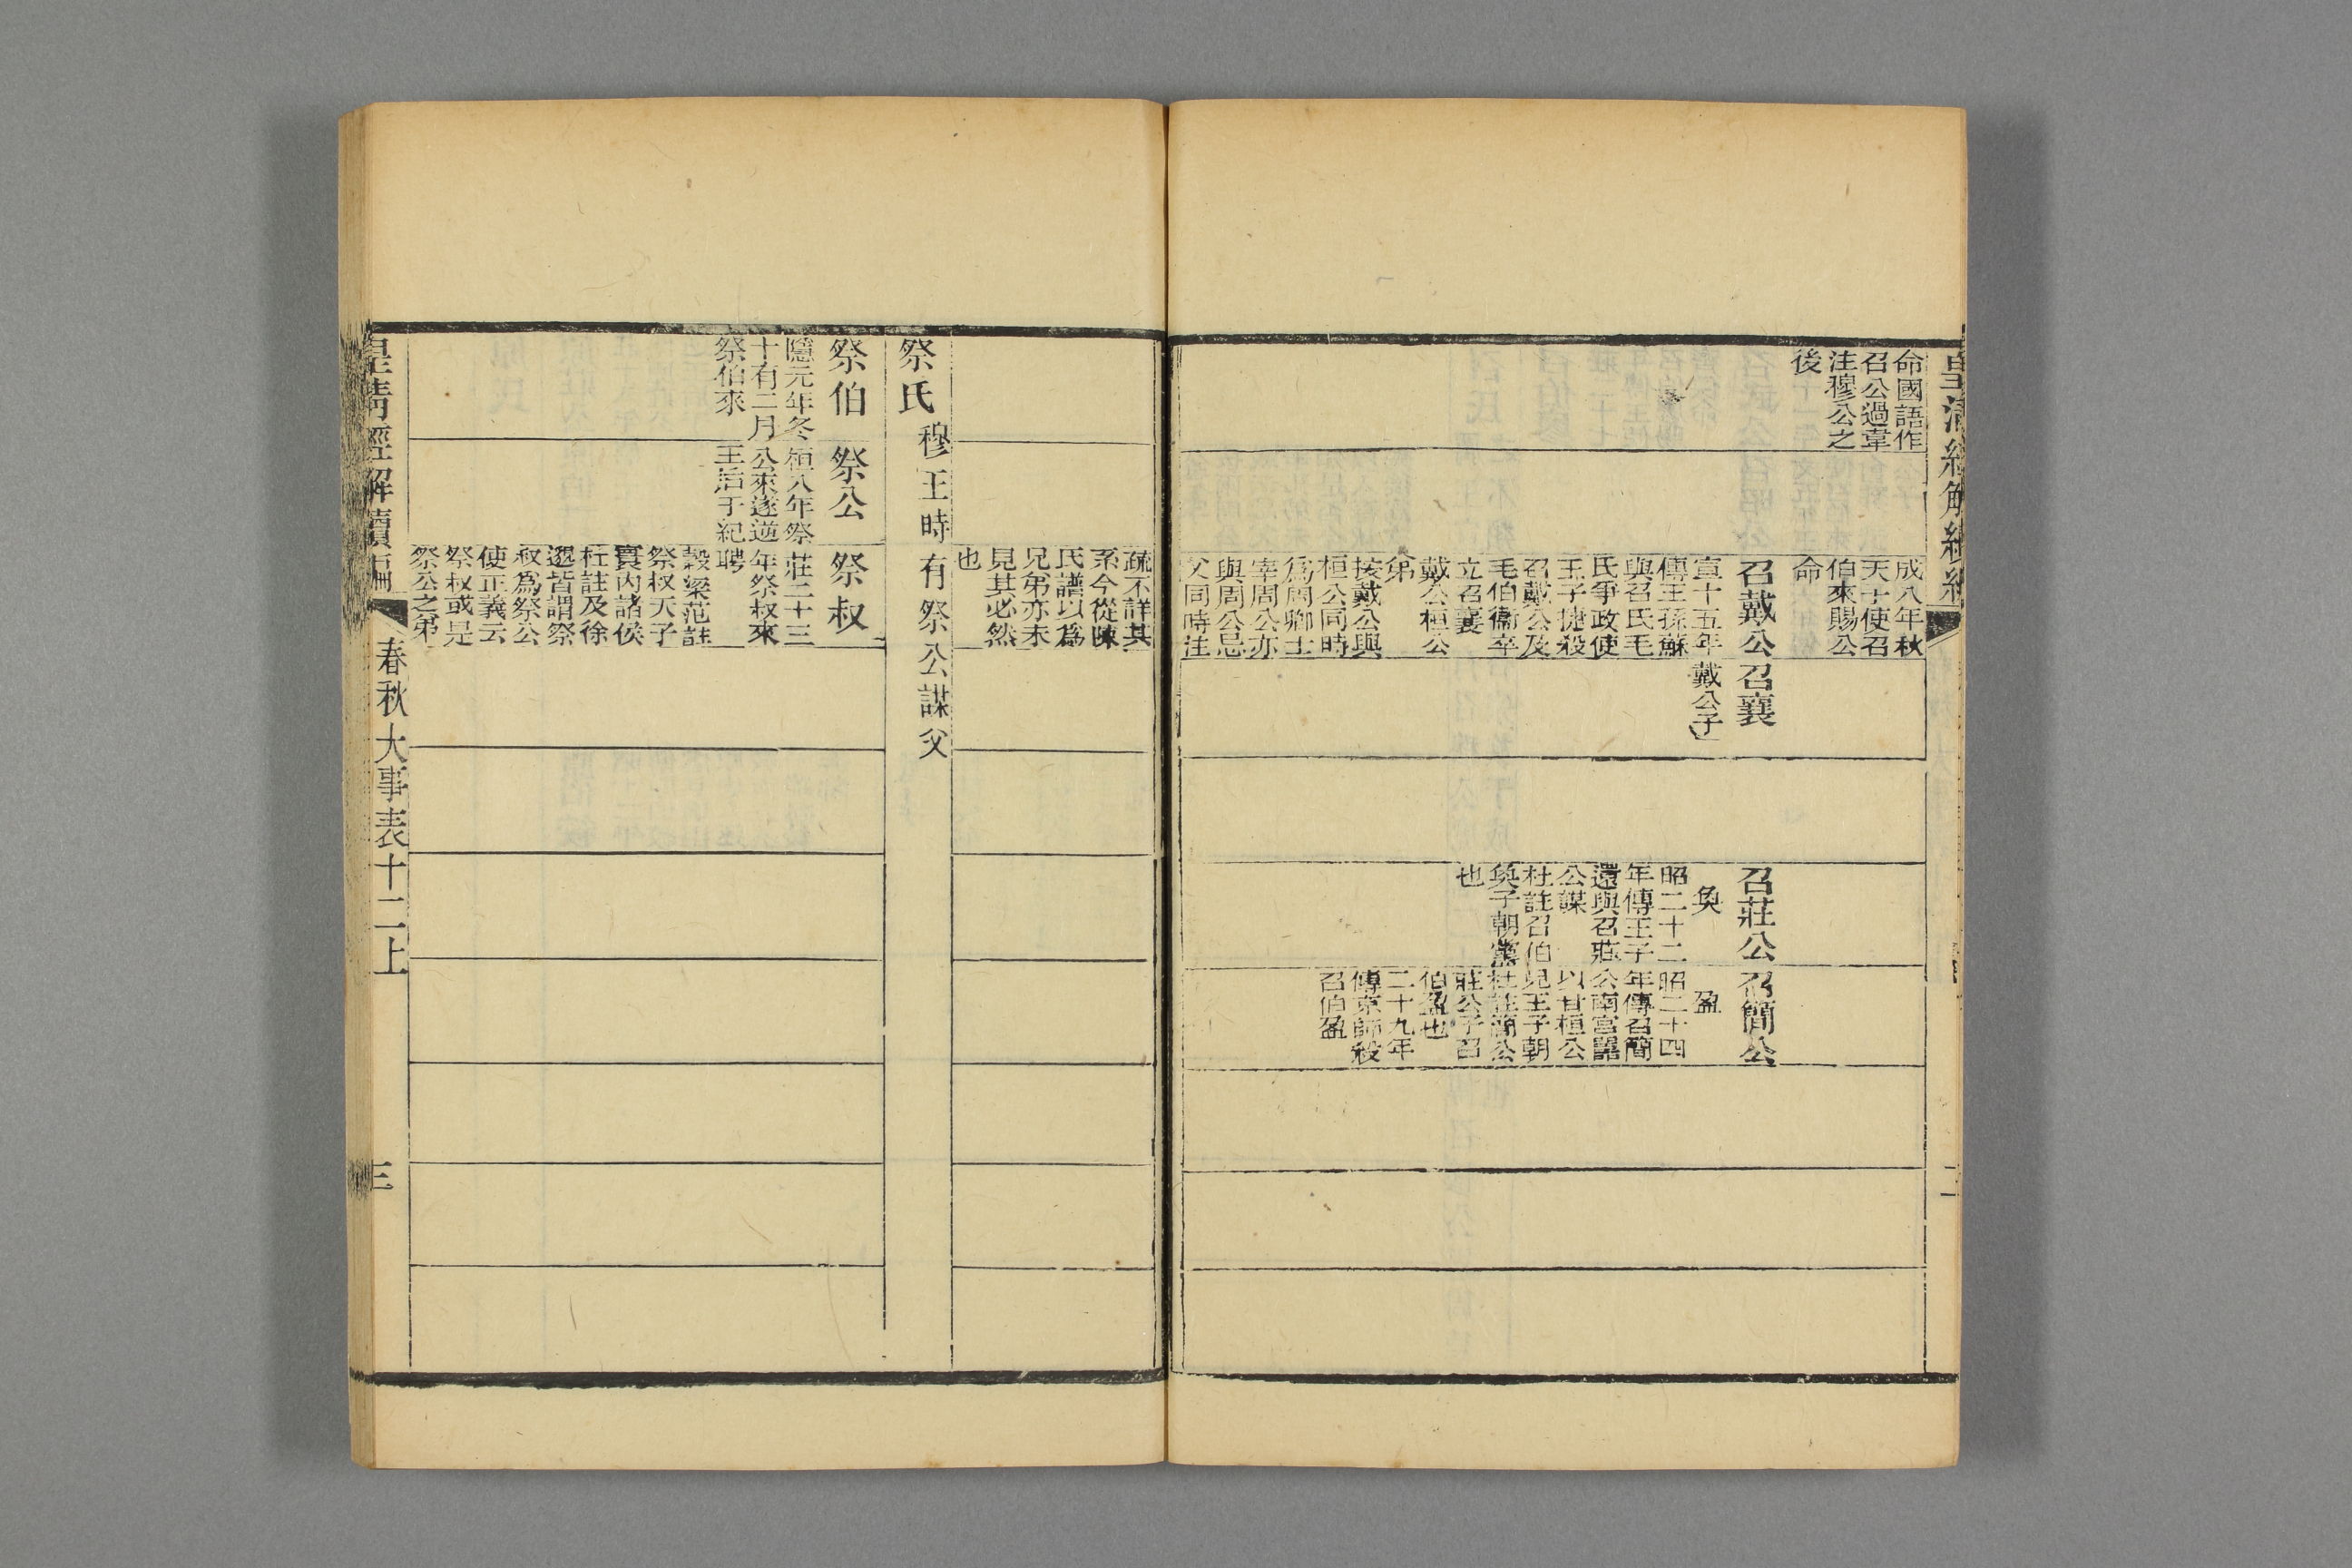 皇清經解續編
二
命國語作
召公過韋
注穆公之
後
成八年秋
天子使召
伯來賜公
命
召戴公
宣十五年
傳王孫蘇
與召氏毛
氏爭政使
王子捷殺
召戴公及
毛伯衞卒
立召襄
戴公桓公
弟
按戴公與
桓公同時
爲周卿士
宰周公亦
與周公忌
父同時注
召襄
戴公子
召莊公
奐
昭二十二
年傳王子
還與召莊
公謀
杜註召伯
奐子朝黨
也
召簡公
盈
昭二十四
年傳召簡
公南宮嚚
以甘桓公
見王子朝
杜註簡公
莊公子召
伯盈也
二十九年
傳京師殺
召伯盈
疏不詳其
系今從陳
氏譜以爲
兄弟亦未
見其必然
也
祭氏
穆王時有祭公謀父
祭伯
隱元年冬
十有二月
祭伯來
祭公
桓八年祭
公來遂逆
王后于紀
祭叔
莊二十三
年祭叔來
聘
穀梁范註
祭叔天子
寰內諸侯
杜註及徐
邈皆謂祭
叔爲祭公
使正義云
祭叔或是
祭公之弟
皇清經解續編 春秋大事表十二上
三